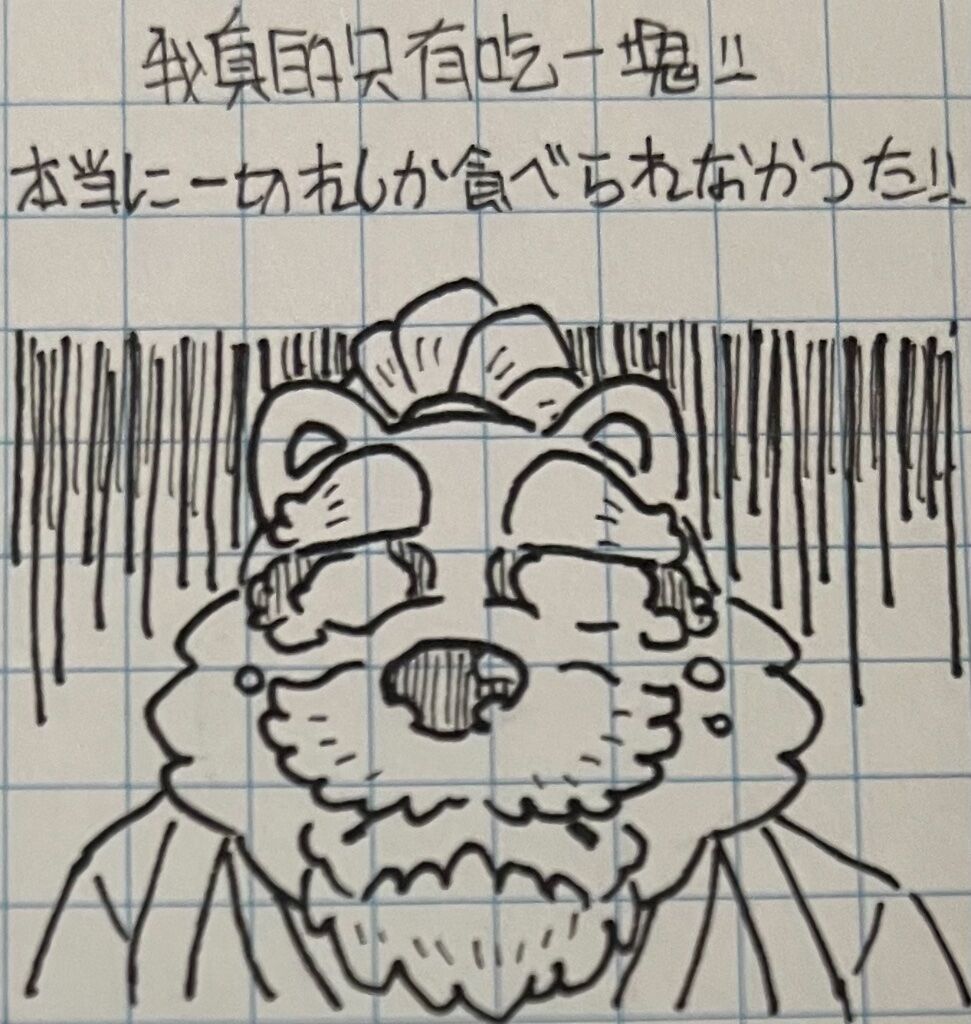 我真的只有吃一塊!!
本当に一切れしか食べられなかった!!